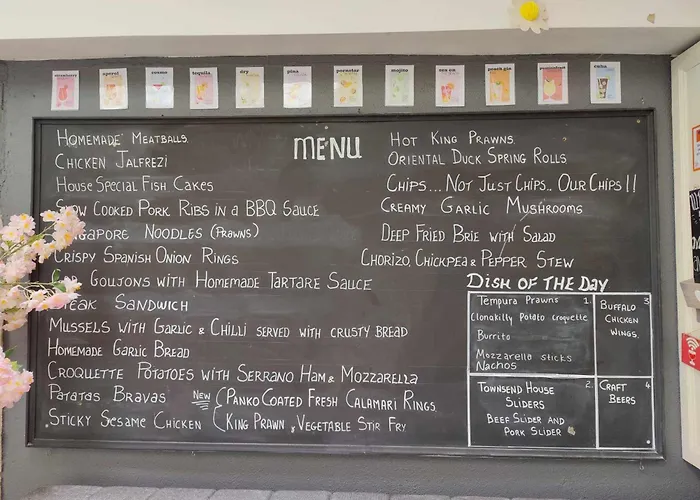 MENU
HOMEMADE MEATBALLS.
CHICKEN JALFREZI
HOUSE SPECIAL FISH CAKES
COOKED PORK RIBS IN A BBQ SAUCE
NOODLES (PRAWNS)
CRISPY SPANISH ONION RINGS
GOUJONS WITH HOMEMADE TARTARE SAUCE
SANDWICH
MUSSELS WITH GARLIC & CHILLI SERVED WITH CRUSTY BREAD
HOMEMADE GARLIC BREAD
CROQUETTE POTATOES WITH SERRANO HAM & MOZZARELLA
PATATAS BRAVAS
STICKY SESAME CHICKEN
NEW
PANKO COATED FRESH CALAMARI RINGS
KING PRAWN, VEGETABLE STIR FRY
HOT KING PRAWNS.
ORIENTAL DUCK SPRING ROLLS
CHIPS... NOT JUST CHIPS.. OUR CHIPS!!
CREAMY GARLIC MUSHROOMS
DEEP FRIED BRIE WITH SALAD
CHORIZO, CHICKPEA & PEPPER STEW
DISH OF THE DAY
Tempura Prawns 1.
Clonakilly Potato croquette
Burrito
Mozzarella sticks
Nachos
TOWNSEND HOUSE 2.
SLIDERS
BEEF SLIDER AND
PORK SLIDER
BUFFALO 3
CHICKEN
WINGS.
CRAFT 4
BEERS